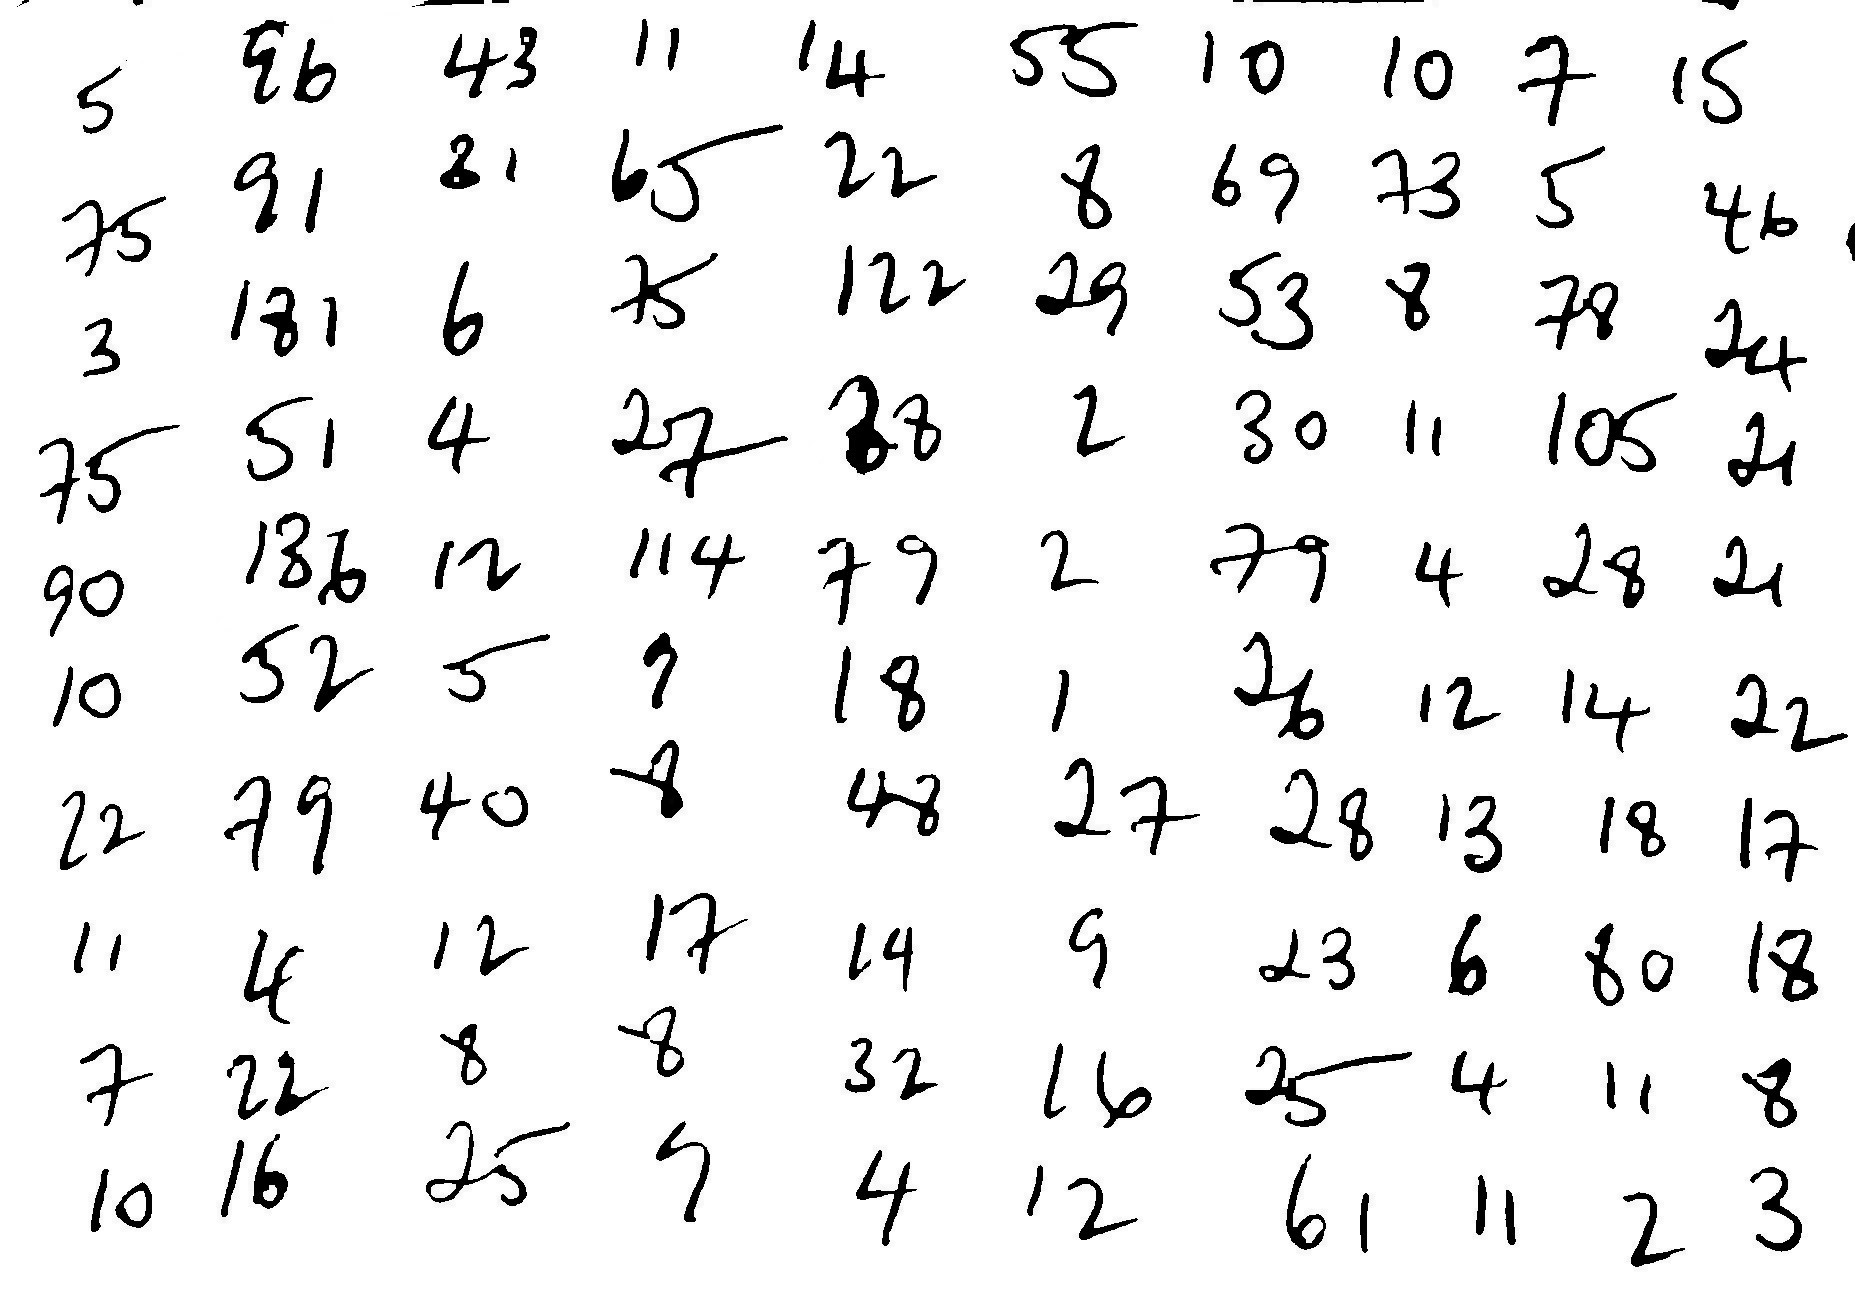 5 96 43 11 14 55 10 10 7 15
75 91 81 65 22 8 69 73 5 46
3 181 6 75 122 29 53 8 78 24
75 51 4 27 38 2 30 11 105 21
90 136 12 114 79 2 79 4 28 21
10 52 5 9 18 1 26 12 14 22
22 79 40 8 48 27 28 13 18 17
11 4 12 17 14 9 23 6 80 18
7 22 8 8 32 16 25 4 11 8
10 16 25 9 4 12 61 11 2 3